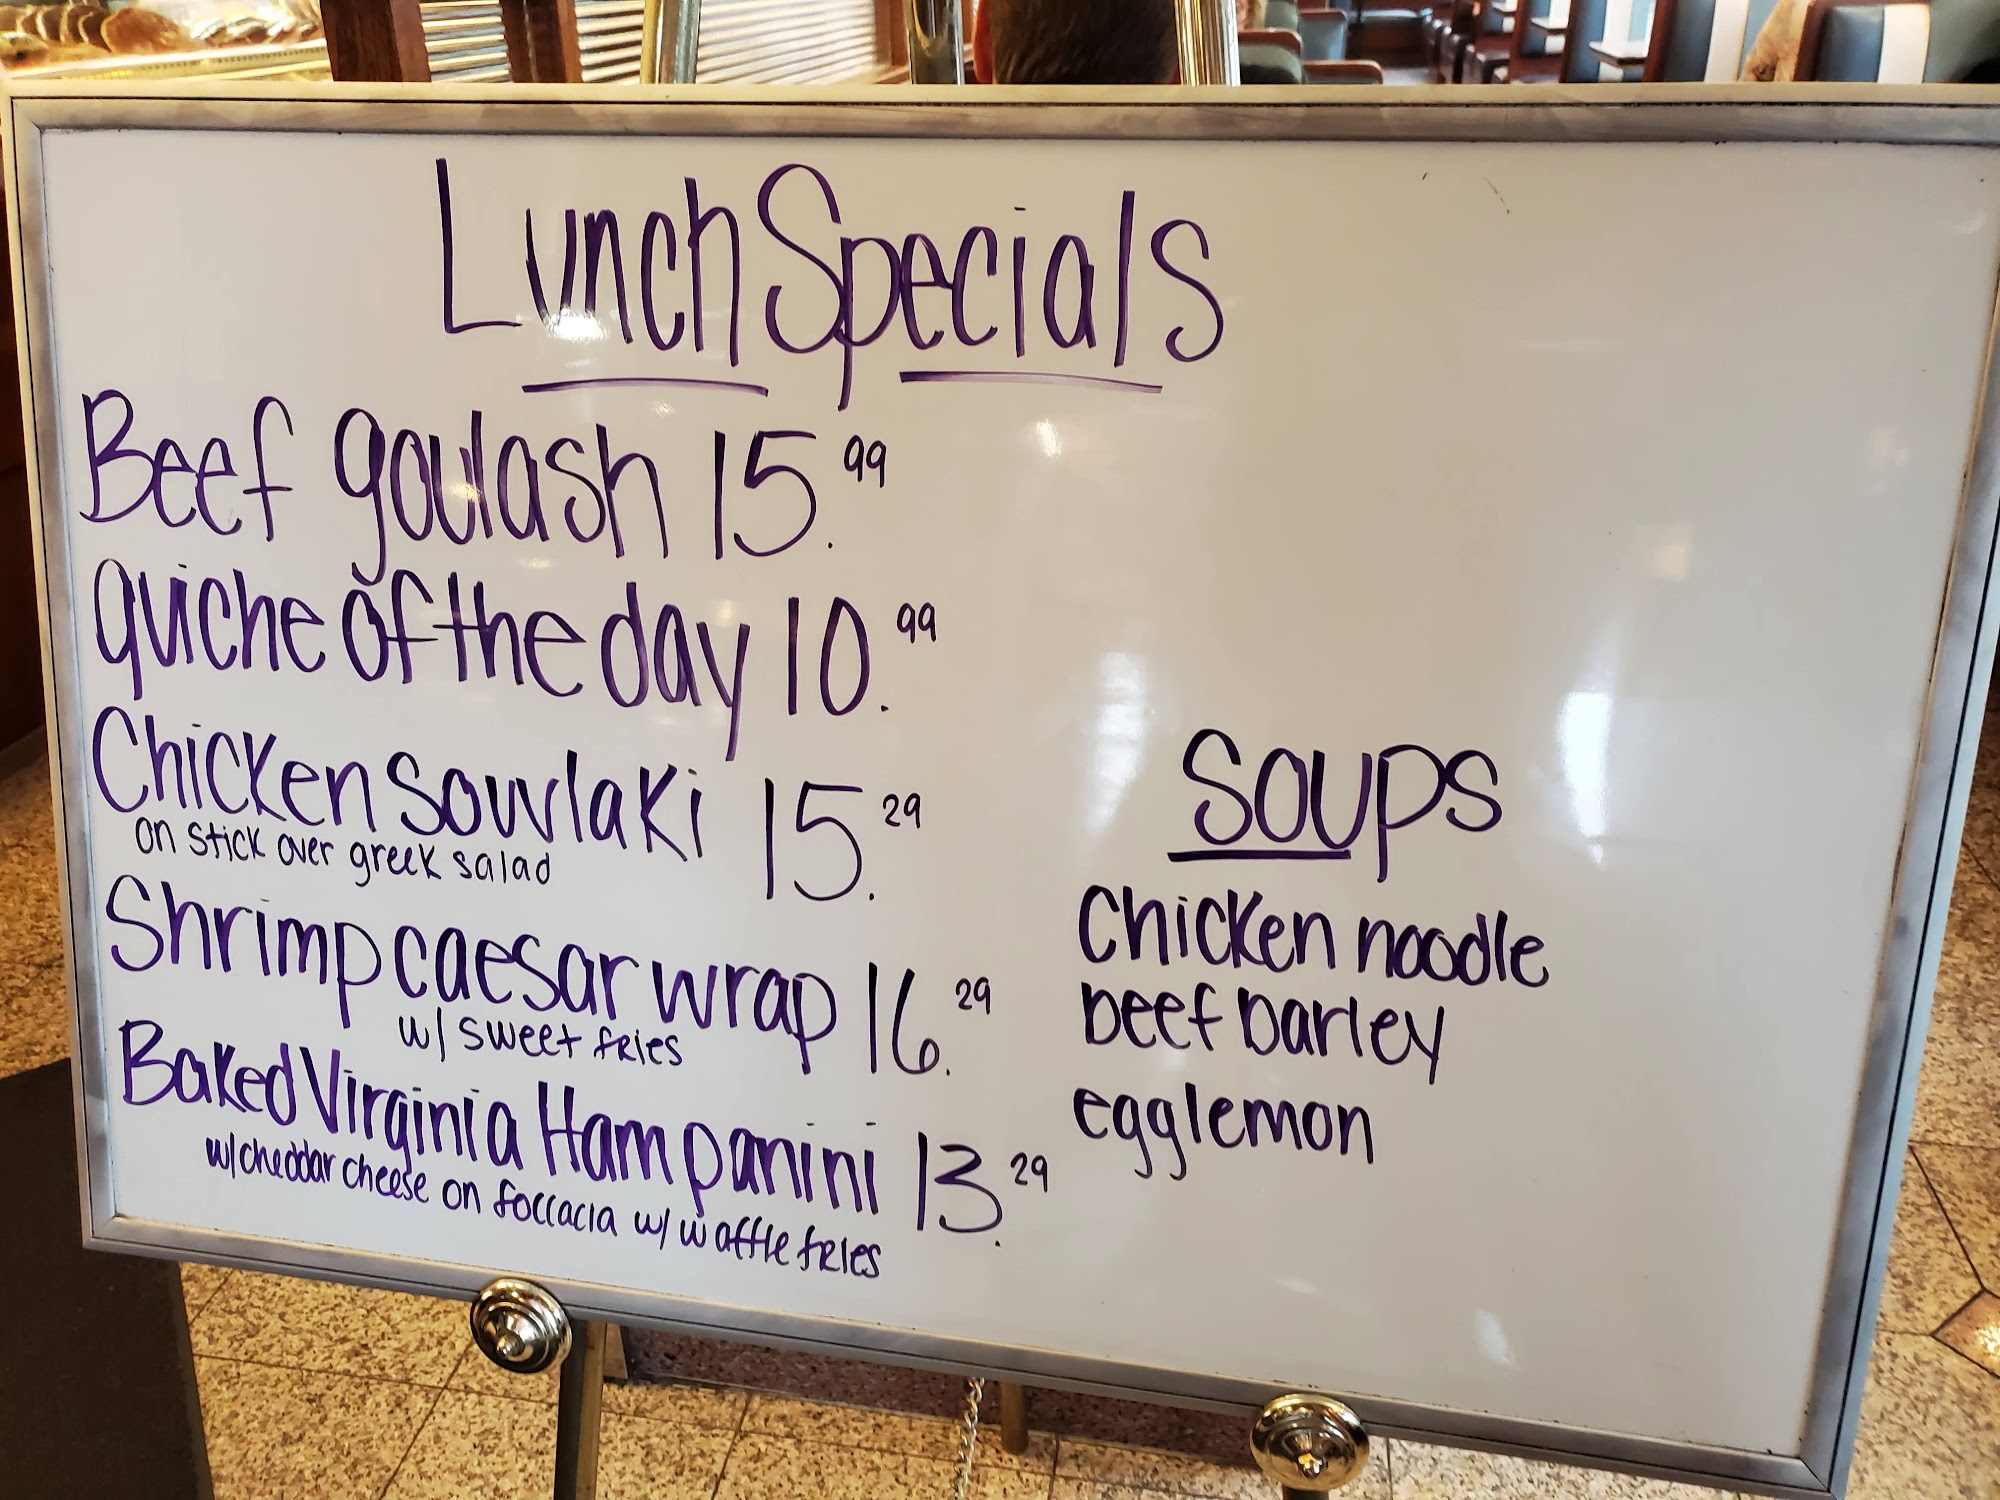 Lunch Specials
Beef goulash 15.99
quiche of the day 10.99
Chicken Souvlaki 15.29
on stick over greek salad
Shrimp caesar wrap 16.29
w/ sweet fries
Baked Virginia Ham panini 13.29
w/ cheddar cheese on foccacia w/ waffle fries
Soups
Chicken noodle
beef barley
egg lemon